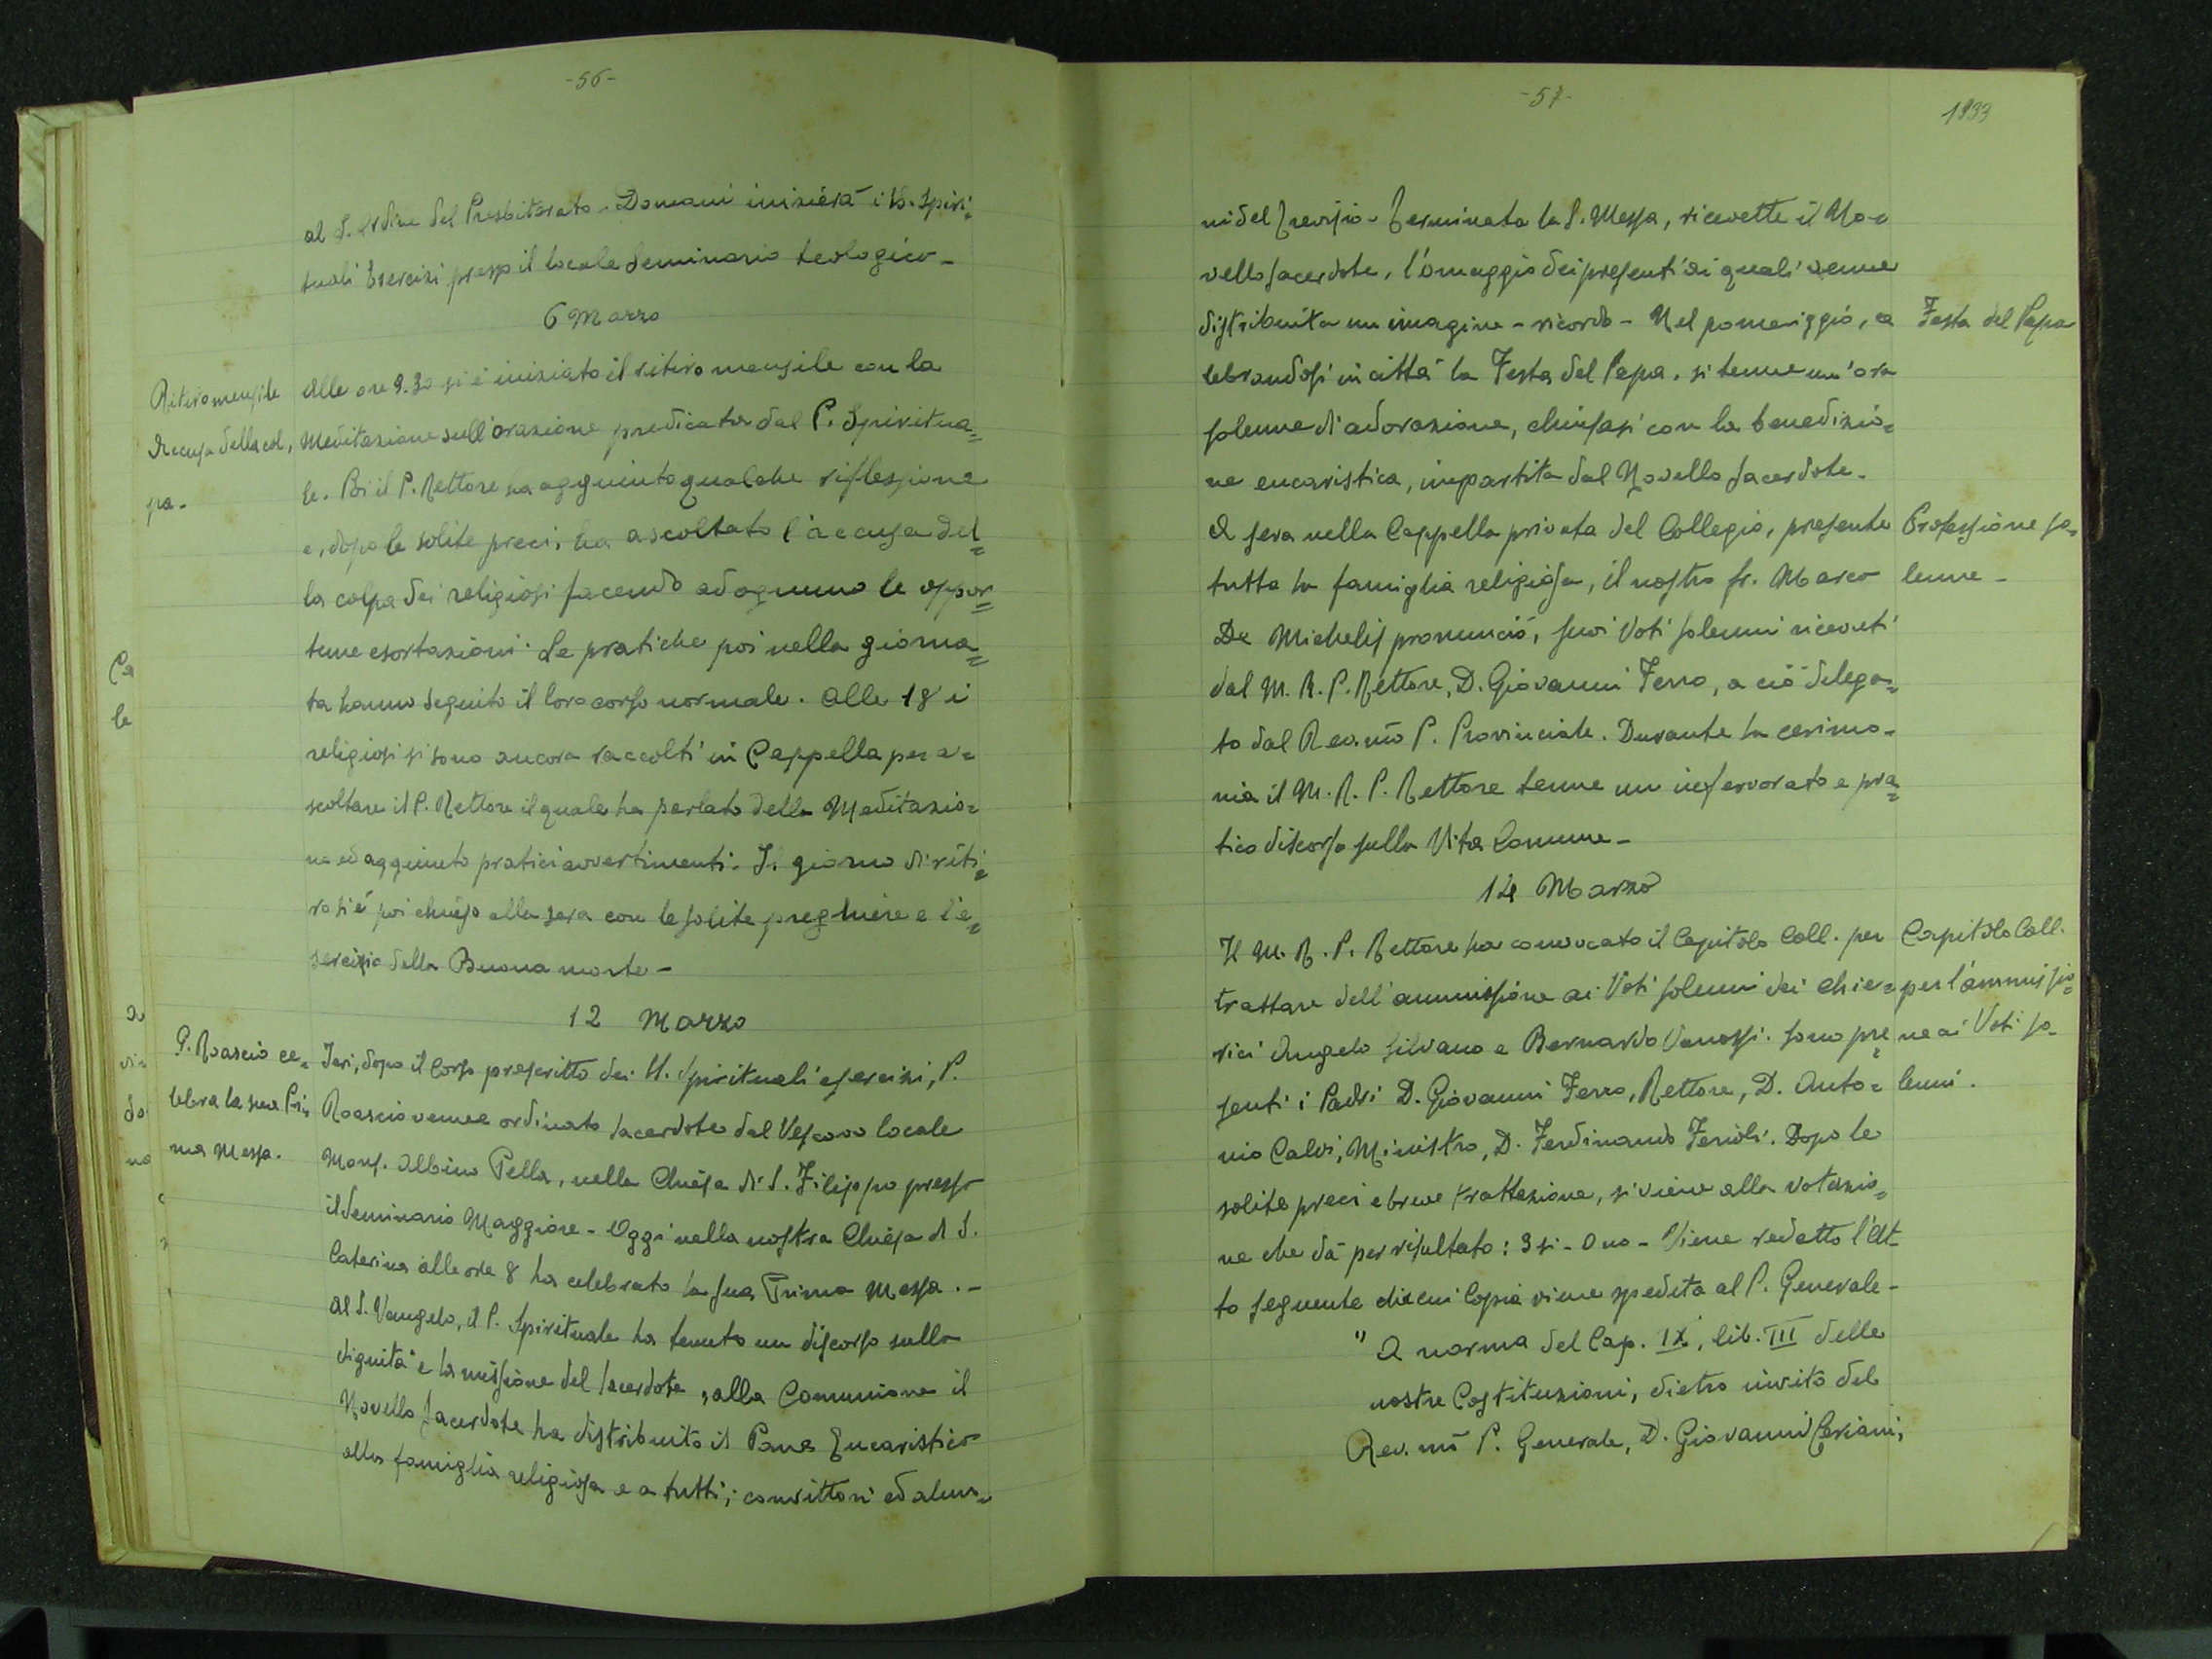 -56-
al S. Ordine del Presbiterato - Domani inizierà i SS. Spiri-
tuali Esercizi presso il locale Seminario teologico -
6 Marzo
Ritiro mensile
Accusa della col,
pa -
Alle ore 9.30 si è iniziato il ritiro mensile con la
Meditazione sull'orazione predicata dal P. Spiritua=
le. Poi il P. Rettore ha aggiunto qualche riflessione
e, dopo le solite preci, ha ascoltato l'accusa del=
la colpa dei religiosi facendo ad ognuno le oppor=
tune esortazioni. Le pratiche poi nella giorna=
ta hanno seguito il loro corso normale. Alle 18 i
religiosi si sono ancora raccolti in Cappella per a=
scoltare il P. Rettore il quale ha parlato della Meditazio=
ne ed aggiunto pratici avvertimenti. Il giorno di riti=
ro si è poi chiuso alla sera con le solite preghiere e l'e=
sercizio della Buona morte -
12 Marzo
P. Roascio ce=
lebra la sua Pri=
ma Messa.
Ieri, dopo il Corso prescritto dei SS. Spirituali esercizi, P.
Roascio venne ordinato Sacerdote dal Vescovo locale
Mons. Albino Pella, nella Chiesa di S. Filippo presso
il Seminario Maggiore - Oggi nella nostra Chiesa di S.
Caterina alle ore 8 ha celebrato la sua Prima Messa. -
Al S. Vangelo, il P. Spirituale ha tenuto un discorso sulla
dignità e la missione del Sacerdote, alla Comunione il
Novello Sacerdote ha distribuito il Pane Eucaristico
alla famiglia religiosa e a tutti; convittori ed alun=
-57-
1933
ni del Trevisio - Terminata la S. Messa, ricevette il No=
vello Sacerdote, l'omaggio dei presenti ai quali venne
distribuita un imagine - ricordo - Nel pomeriggio, ce
lebrandosi in città la Festa del Papa, si tenne un'ora
solenne di adorazione, chiusasi con la benedizio=
ne eucaristica, impartita dal Novello Sacerdote.
Festa del Papa
A sera nella Cappella privata del Collegio, presente
tutta la famiglia religiosa, il nostro fr. Marco
De Michelis pronunciò, suoi Voti solenni ricevuti
dal M. R. P. Rettore, D. Giovanni Ferro, a ciò delega=
to dal Rev.mo P. Provinciale. Durante la cerimo-
nia il M. R. P. Rettore tenne un infervorato e pra=
tico discorso sulla Vita Comune -
Professione so=
lenne -
14 Marzo
Il M. R. P. Rettore ha convocato il Capitolo Coll. per
trattare dell'ammissione ai Voti solenni dei chie=
rici Angelo Silvano e Bernardo Vanossi. Sono pre=
senti i Padri D. Giovanni Ferro, Rettore, D. Anto=
nio Calvi, Ministro, D. Ferdinando Ferioli. Dopo le
solite preci e breve trattazione, si viene alla votazio=
ne che dà per risultato: 3 si - 0 no - Viene redatto l'At-
to seguente di cui Copia viene spedita al P. Generale -
Capitolo Coll.
per l'ammissio=
ne ai Voti so-
lenni.
" A norma del Cap. IX, lib. III delle
nostre Costituzioni, dietro invito del
Rev.mo P. Generale, D. Giovanni Ceriani,